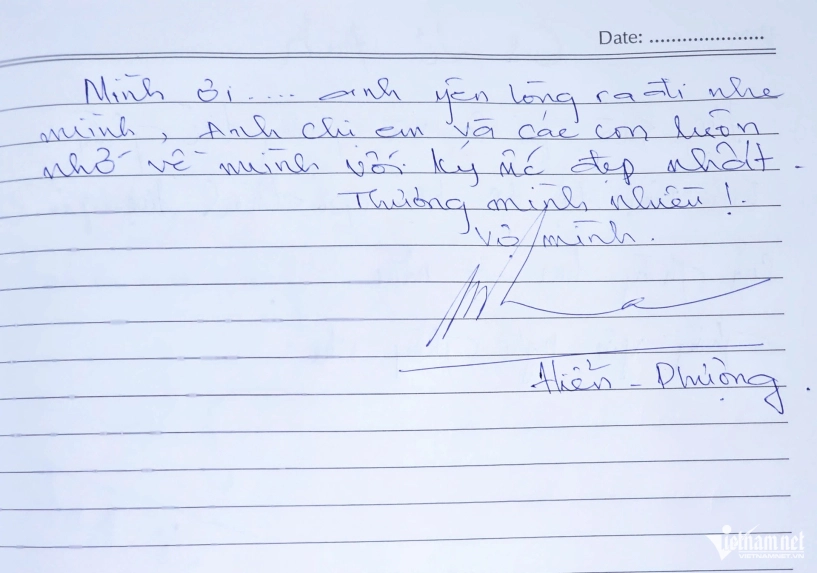 Date: ....................
Mình ơi.... anh yên lòng ra đi nhe
mình, Anh chi em và các con luôn
nhớ về mình với ký ức đẹp nhất.
Thương mình nhiều!.
Vợ mình.
Hiển - Phượng.
Vietnamnet
VIETNAMNET.VN